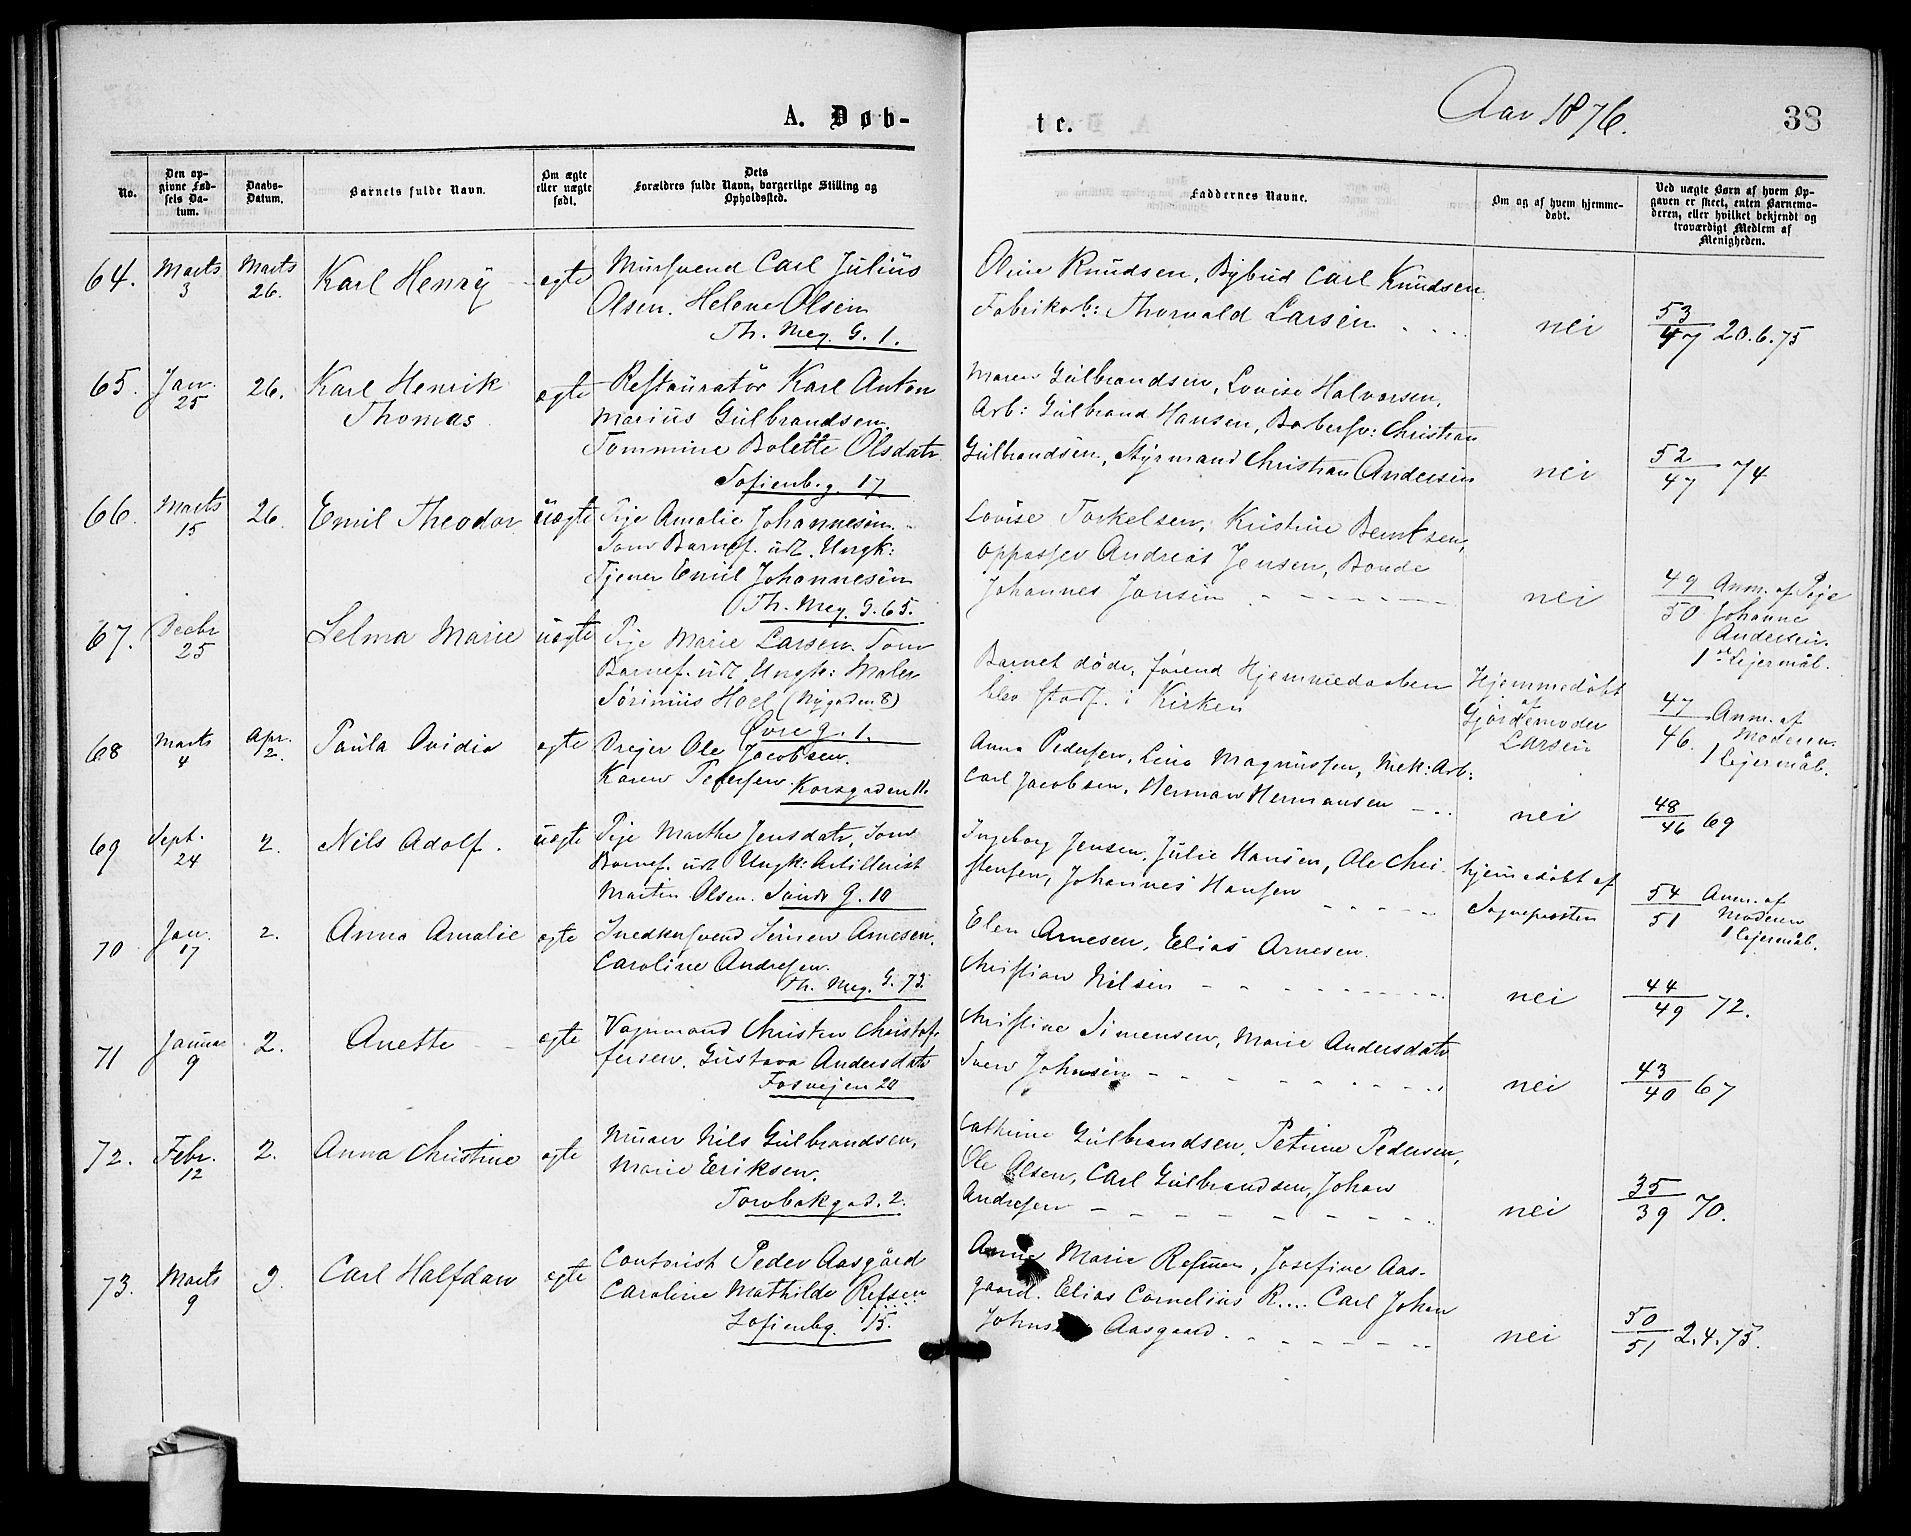 A. Døb-
No.
Den op-
givne Fød-
sels Da-
tum.
Daabs-
Datum.
Barnets fulde Navn.
Om ægte
eller uægte
født.
Dets
Forældres fulde Navn, borgerlige Stilling og
Opholdssted.
64. Marts 3 Marts 26. Karl Henry ægte Mursvend Carl Julius
Olsen. Helene Olsen
Th. Mey. G. 1.
65. Jan. 25 26. Karl Henrik ægte Restauratør Karl Anton
Thomas Marius Gulbrandsen.
Tommine Bolette Olsdatr
Sofienbg. 17
66. Marts 15 26. Emil Theodor uægte Pige Amalie Johannesen.
Som Barnef. udl. Ungk:
Tjener Emil Johannesen
Th. Mey. G. 65.
67. Decbr 25 Selma Marie uægte Pige Marie Larsen. Som
Barnef. udl. Ungk: Maler
Hoel (Nygaden 8)
Øvre g. 1.
68 Marts 4 Apr. 2. Paula Ovidia ægte Drejer Ole Jacobsen.
Karen Pedersen. Korsgaden 11.
69 Sept. 24 2. Nils Adolf. uægte Pige Marthe Jensdatr, Som
Barnef. udl Ungk: Artillerist
Martin Olsen. g. 10
70 Jan. 17 2. Anna Amalie ægte Snedkersvend Simen Arnesen.
Caroline Andresen.
Th. Mey. G. 73.
71 Januar 9 2. Anette ægte Vognmand Christen Christof-
fersen. Gustava Andersdatr
Fosvejen 20
72. Febr. 12 2. Anna Christine ægte Murer Nils Gulbrandsen,
Marie Eriksen.
Torvbakgad. 2.
73. Marts 9 9. Carl Halfdan ægte Contorist Peder Aasgård
Caroline Mathilde Refsen
Sofienbg. 15.
tc.
Aar 1876.
38
Faddernes Navne.
Om og af hvem hjemme-
døbt.
Ved uægte Børn af hvem Op-
gaven er skeet, enten Barnemo-
deren, eller hvilket bekjendt og
troværdigt Medlem af
Menigheden.
Oline Knudsen, Bybud Carl Knudsen
Fabrikarb: Thorvald Larsen nei 53/47 20.6.75
Maren Gulbrandsen, Lovise Halvorsen,
Arb: Gulbrand Hansen, Barbersv: Christian
Gulbrandsen, Styrmand Christian Andersen nei 52/47 74
Lovise Torkelsen, Kristine Berntsen,
Oppasser Andreas Jensen, Bonde
Johannes Jansen nei 49/50 Anm. af Pige
Johanne
Andersen.
1ste Lejermål.
Barnet døde, førend Hjemmedaaben
blev stadf. i Kirken
Hjemmedøbt
af
Gjordemoder
Larsen
47/46. Anm. af
Moderen.
1 Lejermål.
Anna Pedersen, Lina Magnussen, Mek: Arb:
Carl Jacobsen, Herman Hermansen nei 48/46 69
Ingeborg Jensen, Julie Hansen, Ole Chri-
stensen, Johannes Hansen
hjemedøbt af
Sognepresten
54/51 Anm. af
Moderen
1 Lejermål.
Elen Arnesen, Elias Arnesen.
Christian Nilsen nei 44/49 72.
Christine Simensen, Marie Andersdatr
Sven Johnsen nei 43/40 67
Cathrine Gulbrandsen, Petrine Pedersen,
Ole Olsen, Carl Gulbrandsen, Johan
Andresen nei 35/39 70.
Anna Marie Refsnen, Josefine Aas-
gaard. Elias Cornelius R.... Carl Johan
Aasgaard. nei 50/51 2.4.75.